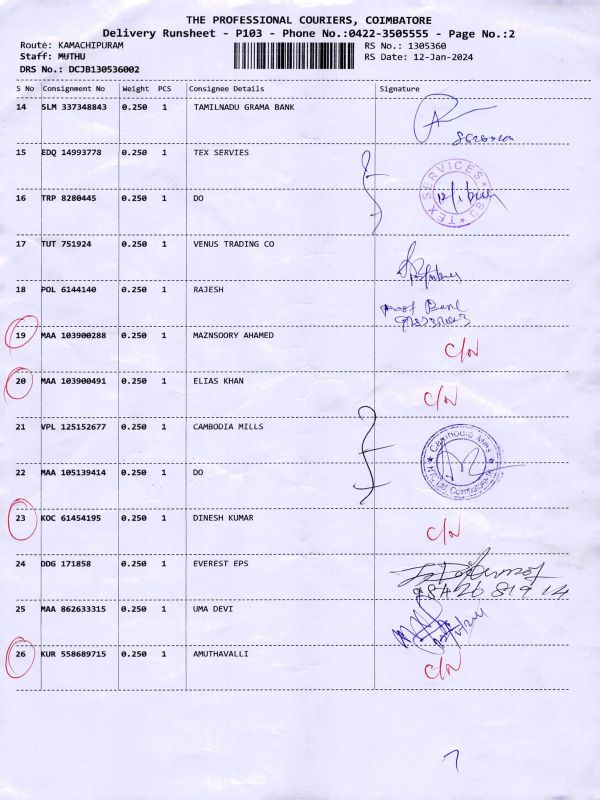 THE PROFESSIONAL COURIERS, COIMBATORE
Delivery Runsheet - P103 - Phone No.:0422-3505555 - Page No.:2
Route: KAMACHIPURAM RS No.: 1305360
Staff: MUTHU RS Date: 12-Jan-2024
DRS No.: DCJB130536002
S No Consignment No Weight PCS Consignee Details Signature
14 SLM 337348843 0.250 1 TAMILNADU GRAMA BANK
15 EDQ 14993778 0.250 1 TEX SERVIES
TEX SERVICES CB
16 TRP 8280445 0.250 1 DO
17 TUT 751924 0.250 1 VENUS TRADING CO
18 POL 6144140 0.250 1 RAJESH
19 MAA 103900288 0.250 1 MAZNSOORY AHAMED C/N
20 MAA 103900491 0.250 1 ELIAS KHAN C/N
21 VPL 125152677 0.250 1 CAMBODIA MILLS
Cambodia Mills
22 MAA 105139414 0.250 1 DO
23 KOC 61454195 0.250 1 DINESH KUMAR C/N
24 DDG 171858 0.250 1 EVEREST EPS
98426 81914
25 MAA 862633315 0.250 1 UMA DEVI
26 KUR 558689715 0.250 1 AMUTHAVALLI C/N